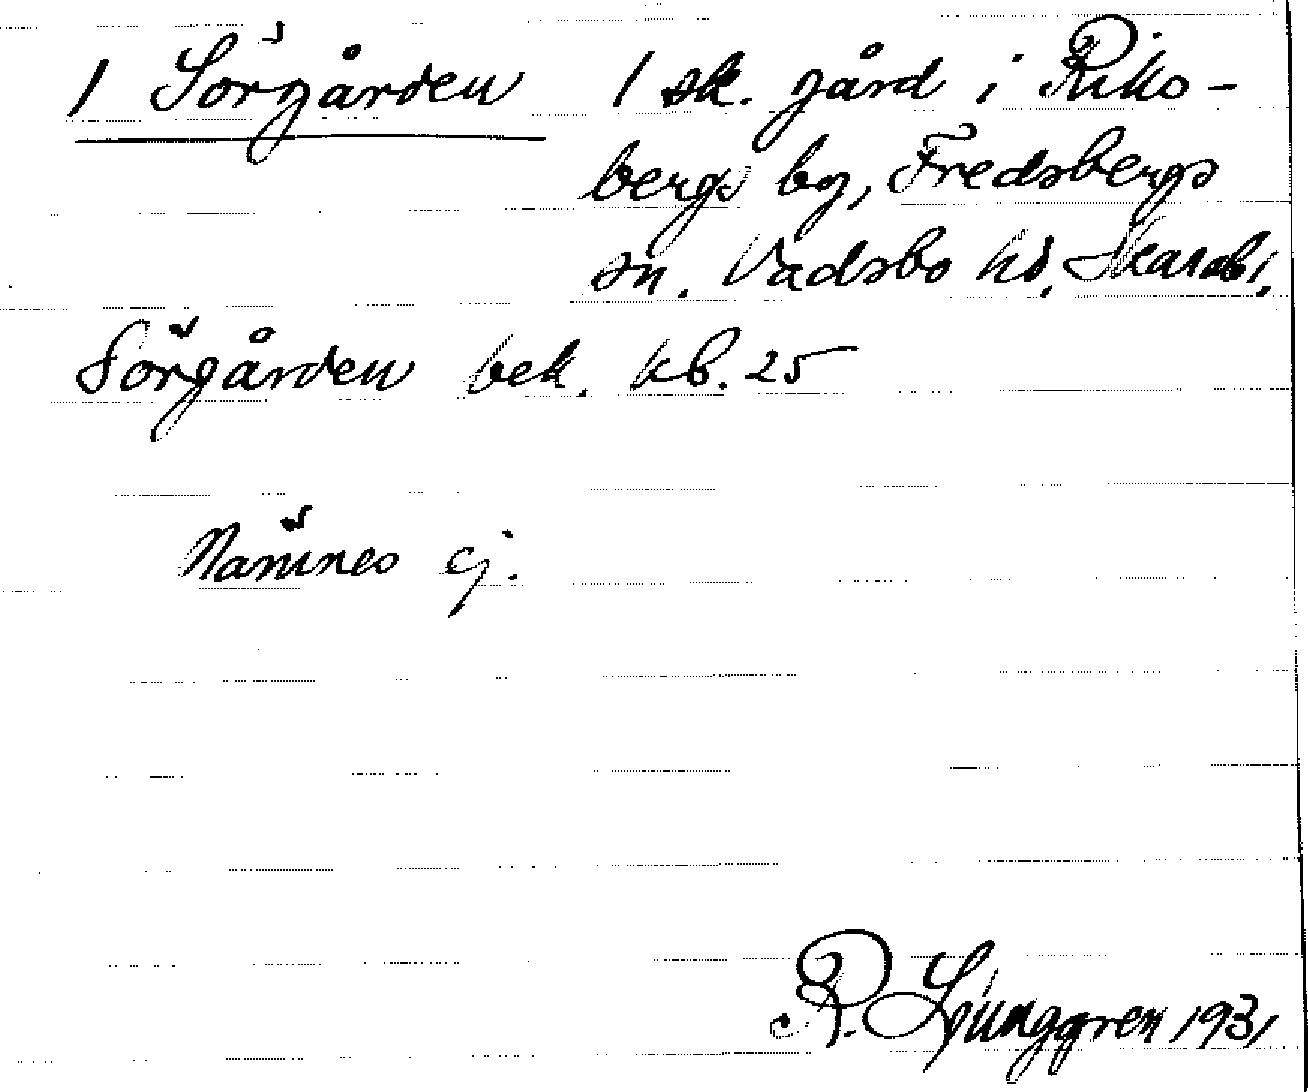 1 Sörgården 1 sk. gård i Riks-
bergs by, Fredsbergs
sn. Vadsbo hd, Skarabl.
Sörgården bek. kb. 25
Nämnes ej.
R. Ljunggren 1931